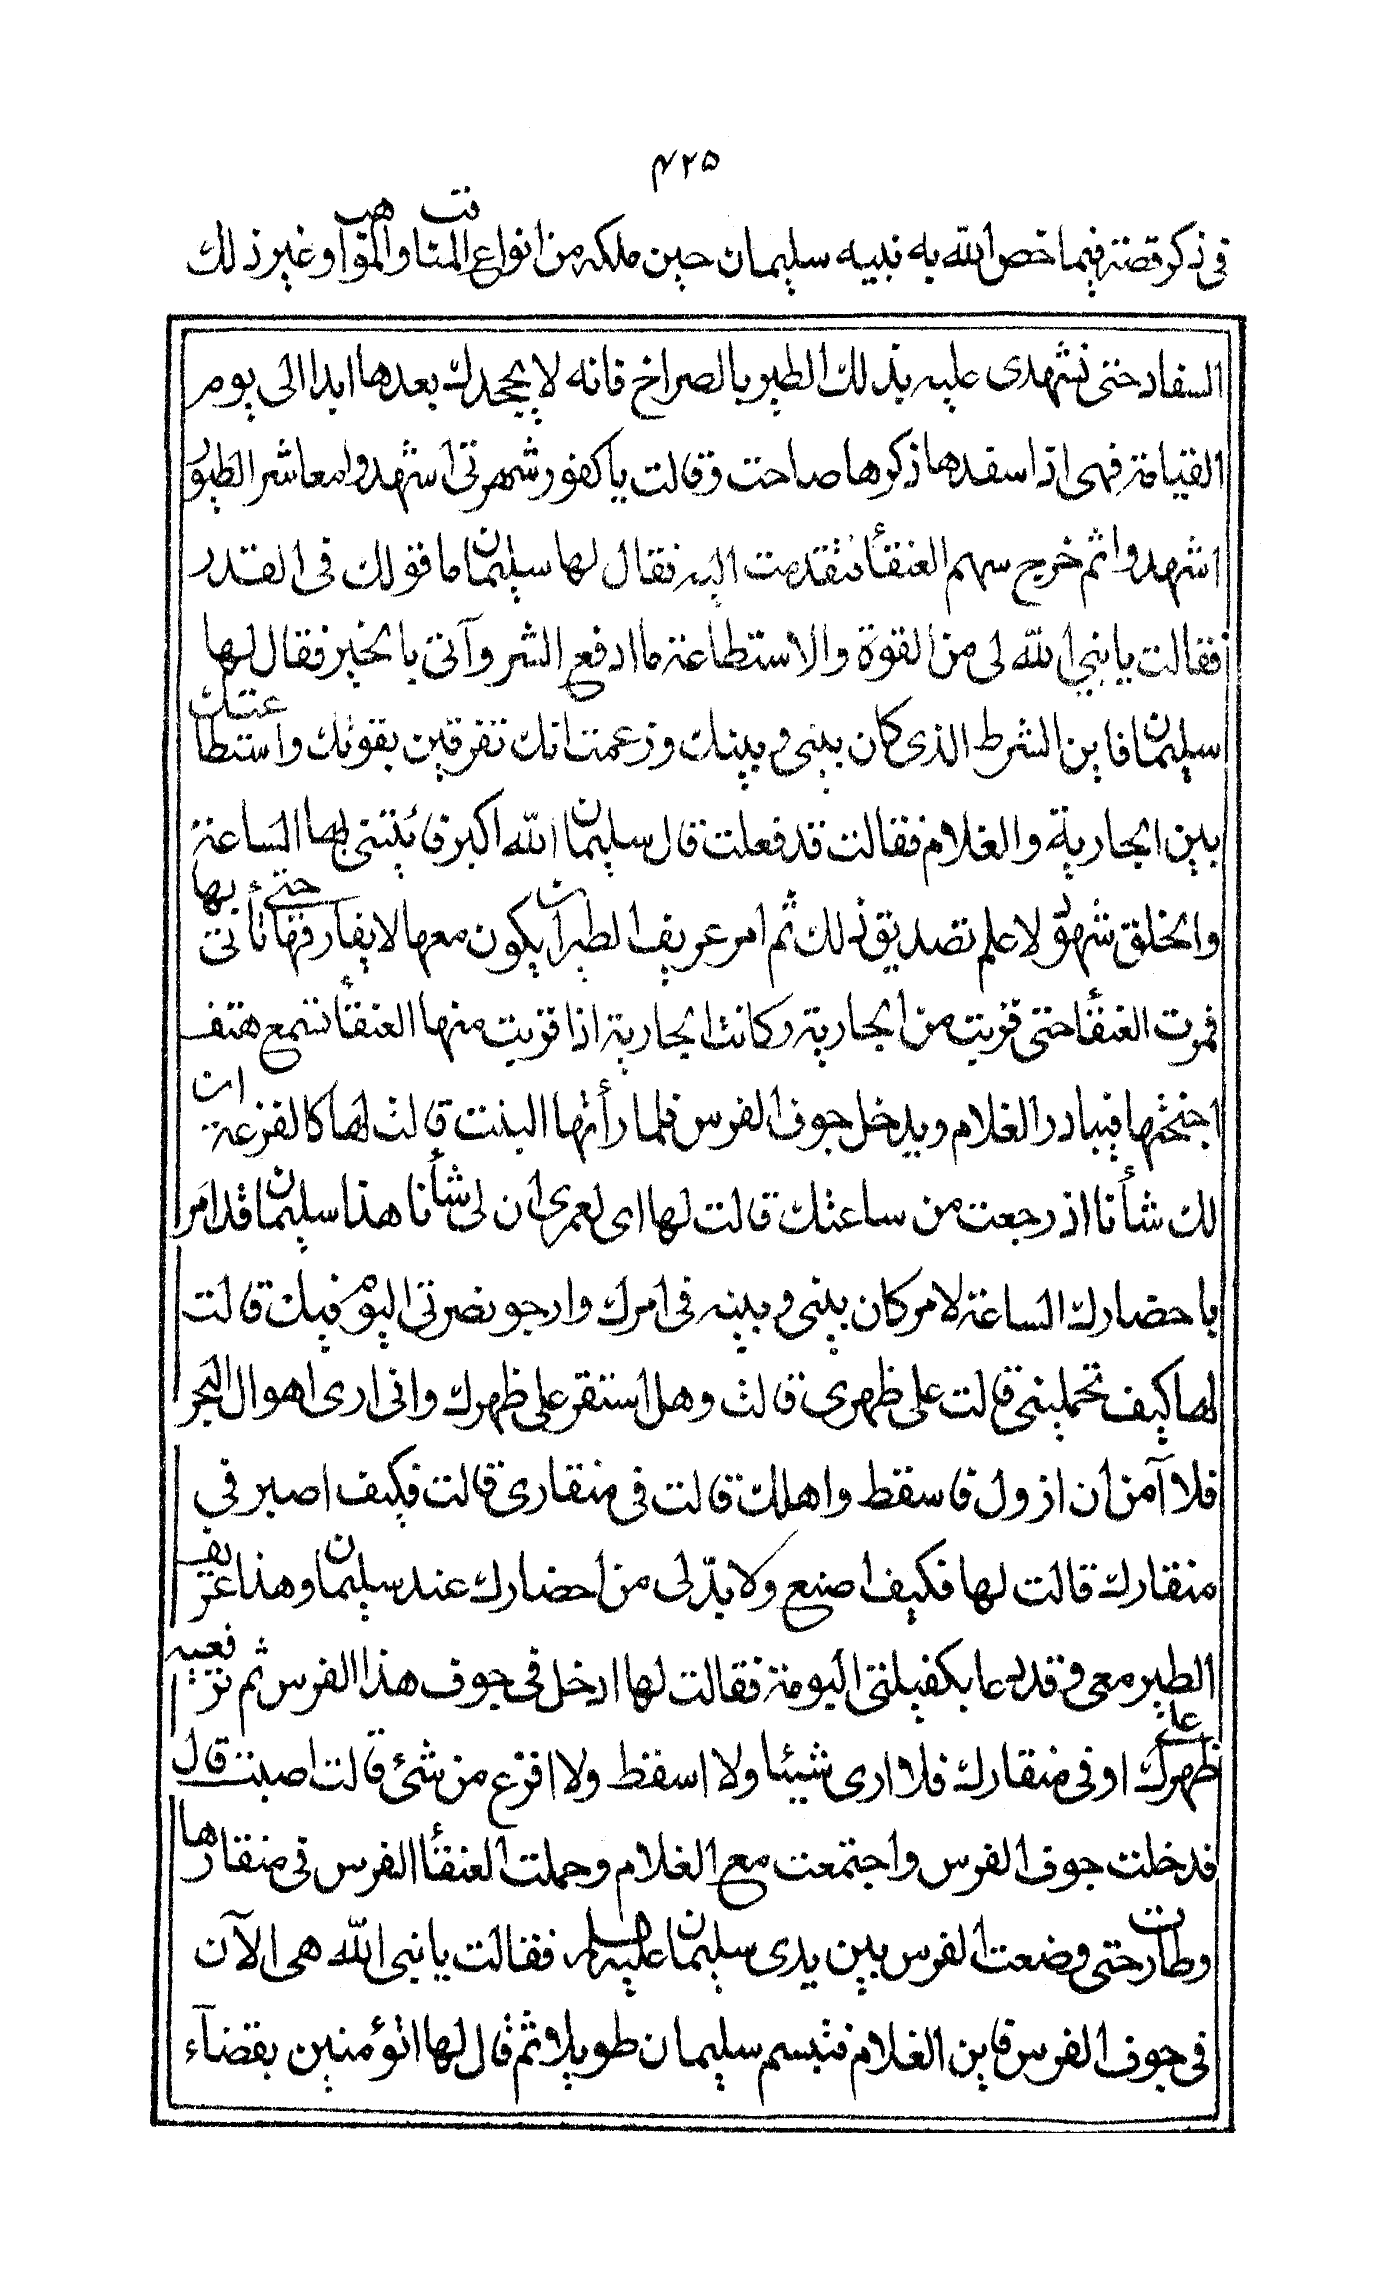 ٤٢٥
فى ذكر قصته فيما خص الله به نبيه سليمان حين ملكه من انواع المناقب والمواهب وغير ذلك
السفاد حتى تشهدى عليه بذلك الطير بالصراخ فانه لا يجحدك بعدها ابدا الى يوم
القيامة فهى اذا سفدها ذكرها صاحت وقالت يا كفور شهرتى اشهدوا معاشر الطيور
اشهدوا ثم خرج سهم العنقأ فتقدمت اليه فقال لها سليمان ما قولك فى القدر
فقالت يا نبي الله لى من القوة والاستطاعة ما ادفع الشر وآتى بالخير فقال لها
سليمان فاين الشرط الذى كان بينى وبينك وزعمت انك تفرقين بقوتك واستطاعتك
بين الجارية والغلام فقالت قد فعلت قال سليمان الله اكبر فائتنى بها الساعة
والخلق شهود لاعلم تصديق ذلك ثم امر عريف الطير ان يكون معها لا يفارقها حتى تأتى بها
فمرت العنقأ حتى قربت من الجارية وكانت الجارية اذا قربت منها العنقأ تسمع هتف
اجنحتها فيبادر الغلام ويدخل جوف الفرس فلما رأتها البنت قالت لها كالفزعة ان
لك شأنا اذ رجعت من ساعتك قالت لها اى لعمرى ان لى شأنا هذا سليمان قد امر
باحضارك الساعة لامر كان بينى وبينه فى امرك وارجو نصرتى اليوم فيك قالت
لها كيف تحملينى قالت على ظهرى قالت وهل استقر على ظهرك وانى ارى اهوال البحر
فلا آمن ان ازول فاسقط واهلك قالت فى منقارى قالت فكيف اصبر في
منقارك قالت لها فكيف اصنع ولا بدّ لى من احضارك عند سليمان وهذا عريف
الطير معى وقد دعا بكفيلتى البومة فقالت لها ادخل فى جوف هذا الفرس ثم ترفعيه
على ظهرك او فى منقارك فلا ارى شيئا ولا اسقط ولا افزع من شئ قالت اصبت قال
فدخلت جوف الفرس واجتمعت مع الغلام وحملت العنقأ الفرس فى منقارها
وطارت حتى وضعت الفرس بين يدى سليمان عليه السلم فقالت يا نبى الله هى الآن
فى جوف الفرس فاين الغلام فتبسم سليمان طويلا ثم قال لها اتؤمنين بقضآء